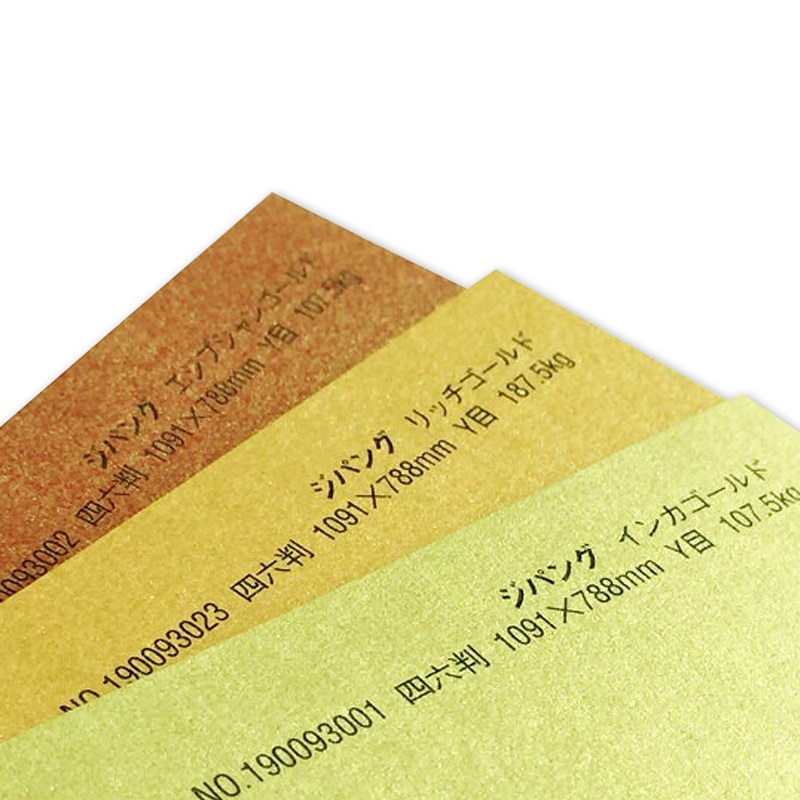 ジパング エジプシャンゴールド
0093002 四六判 1091×788mm Y目 107.5kg
ジパング リッチゴールド
NO.190093023 四六判 1091×788mm Y目 187.5kg
ジパング インカゴールド
NO.190093001 四六判 1091×788mm Y目 107.5kg